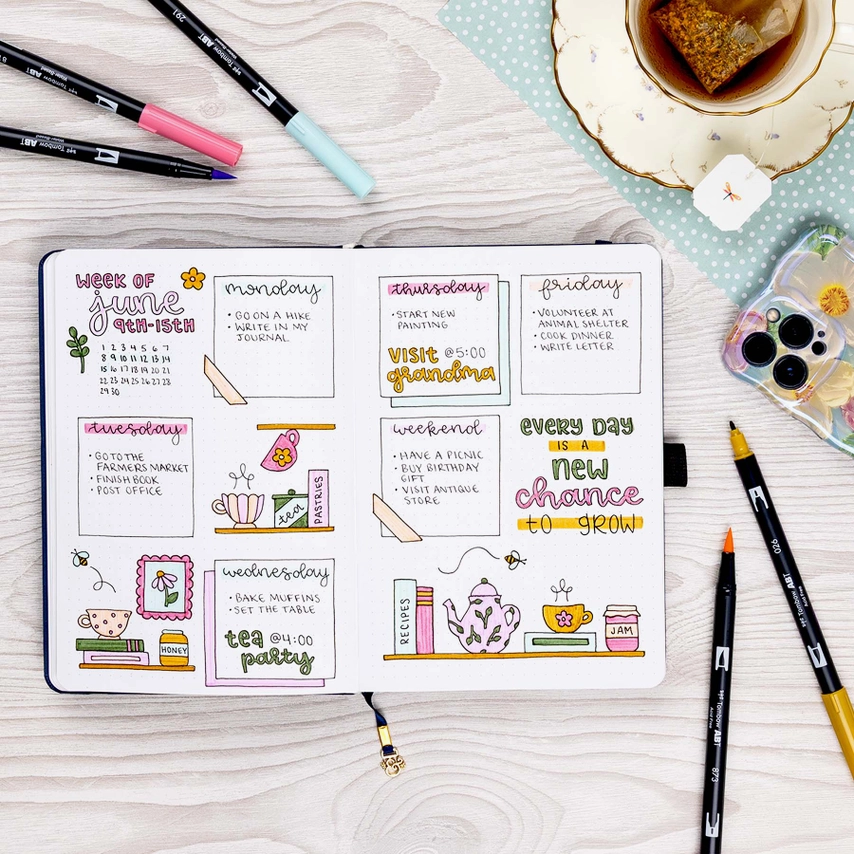 291
Tombow ABT
Tombow ABT
Water-Based
Tombow ABT
Water-Based
WEEK OF
june
9TH-15TH
1 2 3 4 5 6 7
8 9 10 11 12 13 14
15 16 17 18 19 20 21
22 23 24 25 26 27 28
29 30
monday
• GO ON A HIKE
• WRITE IN MY
JOURNAL
tuesday
• GO TO THE
FARMERS MARKET
• FINISH BOOK
• POST OFFICE
tea
PASTRIES
HONEY
wednesday
• BAKE MUFFINS
• SET THE TABLE
tea @4:00
party
thursday
• START NEW
PAINTING
VISIT @5:00
grandma
friday
• VOLUNTEER AT
ANIMAL SHELTER
• COOK DINNER
• WRITE LETTER
weekend
• HAVE A PICNIC
• BUY BIRTHDAY
GIFT
• VISIT ANTIQUE
STORE
EVERY DAY
IS A
NEW
chance
to GROW
RECIPES
JAM
026
Tombow ABT
Acid Free
Tombow ABT
Acid Free
873